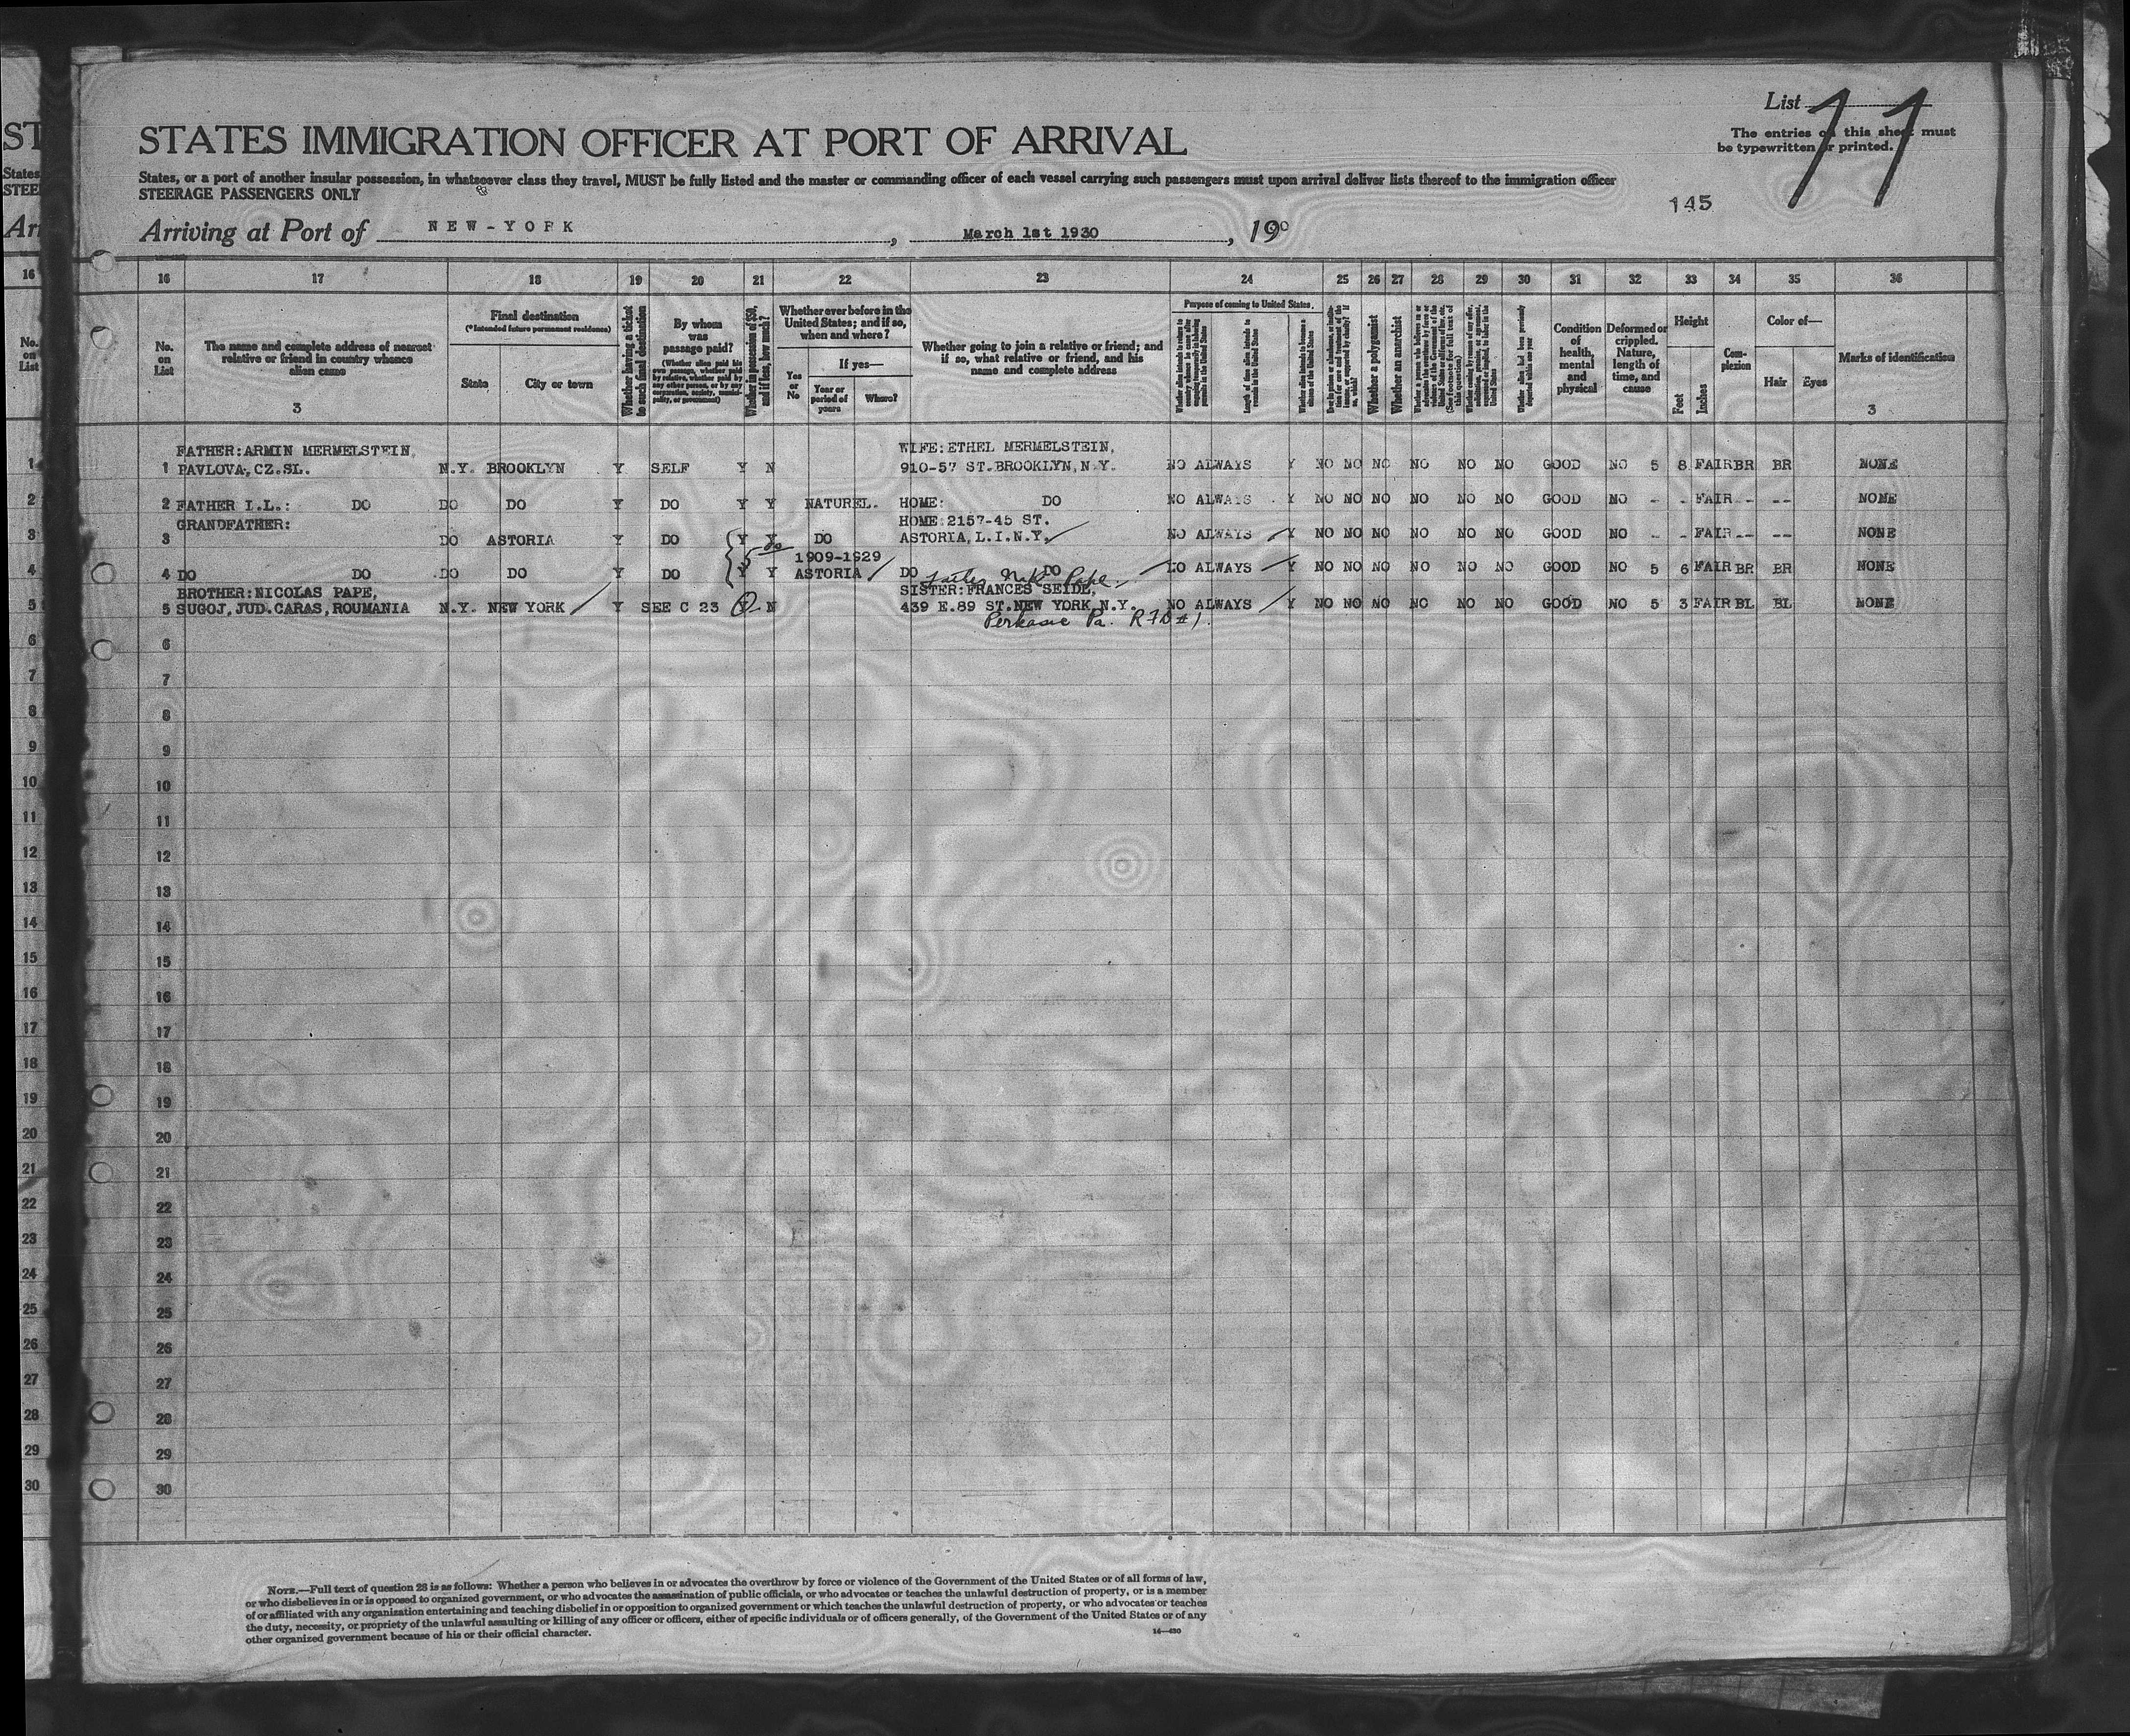 List 11
The entries on this sheet must
be typewritten or printed.
STATES IMMIGRATION OFFICER AT PORT OF ARRIVAL
States, or a port of another insular possession, in whatsoever class they travel, MUST be fully listed and the master or commanding officer of each vessel carrying such passengers must upon arrival deliver lists thereof to the immigration officer
STEERAGE PASSENGERS ONLY
145
Arriving at Port of NEW-YORK, March 1st 1930, 19
16 17 18 19 20 21 22 23 24 25 26 27 28 29 30 31 32 33 34 35 36
No. on List
The name and complete address of nearest relative or friend in country whence alien came
3
Final destination
(*Intended future permanent residence)
State
City or town
Whether having a ticket to such final destination
By whom was passage paid?
(Whether alien paid his own passage, whether paid by relative, whether paid by any other person, or by any corporation, society, municipality, or government)
Whether in possession of $50, and if less, how much?
Whether ever before in the United States; and if so, when and where?
Yes or No
If yes—
Year or period of years
Where?
Whether going to join a relative or friend; and if so, what relative or friend, and his name and complete address
Purpose of coming to United States.
Whether a polygamist
Whether an anarchist
Condition of health, mental and physical
Deformed or crippled. Nature, length of time, and cause
Height
Feet
Inches
Complexion
Color of—
Hair
Eyes
Marks of identification
3
FATHER: ARMIN MERMELSTEIN, WIFE: ETHEL MERMELSTEIN,
1 PAVLOVA, CZ.SL. N.Y. BROOKLYN Y SELF Y N 910-57 ST. BROOKLYN, N.Y. NO ALWAYS Y NO NO NO NO NO NO GOOD NO 5 8 FAIR BR BR NONE
2 FATHER I.L.: DO DO DO Y DO Y Y NATUREL. HOME: DO NO ALWAYS Y NO NO NO NO NO NO GOOD NO - - FAIR -- -- NONE
GRANDFATHER: HOME: 2157-45 ST.
3 DO ASTORIA Y DO Y Y DO ASTORIA, L.I.N.Y. NO ALWAYS Y NO NO NO NO NO NO GOOD NO - - FAIR -- -- NONE
1909-1929
4 DO DO DO DO Y DO Y Y ASTORIA DO DO NO ALWAYS Y NO NO NO NO NO NO GOOD NO 5 6 FAIR BR BR NONE
BROTHER: NICOLAS PAPE, SISTER: FRANCES SEIDE,
5 SUGOJ, JUD. CARAS, ROUMANIA N.Y. NEW YORK Y SEE C 23 Y N 439 E.89 ST. NEW YORK, N.Y. NO ALWAYS Y NO NO NO NO NO NO GOOD NO 5 3 FAIR BL BL NONE
Perkasie Pa. RFD #1.
6
7
8
9
10
11
12
13
14
15
16
17
18
19
20
21
22
23
24
25
26
27
28
29
30
NOTE.—Full text of question 28 is as follows: Whether a person who believes in or advocates the overthrow by force or violence of the Government of the United States or of all forms of law,
or who disbelieves in or is opposed to organized government, or who advocates the assassination of public officials, or who advocates or teaches the unlawful destruction of property, or is a member
of or affiliated with any organization entertaining and teaching disbelief in or opposition to organized government or which teaches the unlawful destruction of property, or who advocates or teaches
the duty, necessity, or propriety of the unlawful assaulting or killing of any officer or officers, either of specific individuals or of officers generally, of the Government of the United States or of any
other organized government because of his or their official character.
14—430